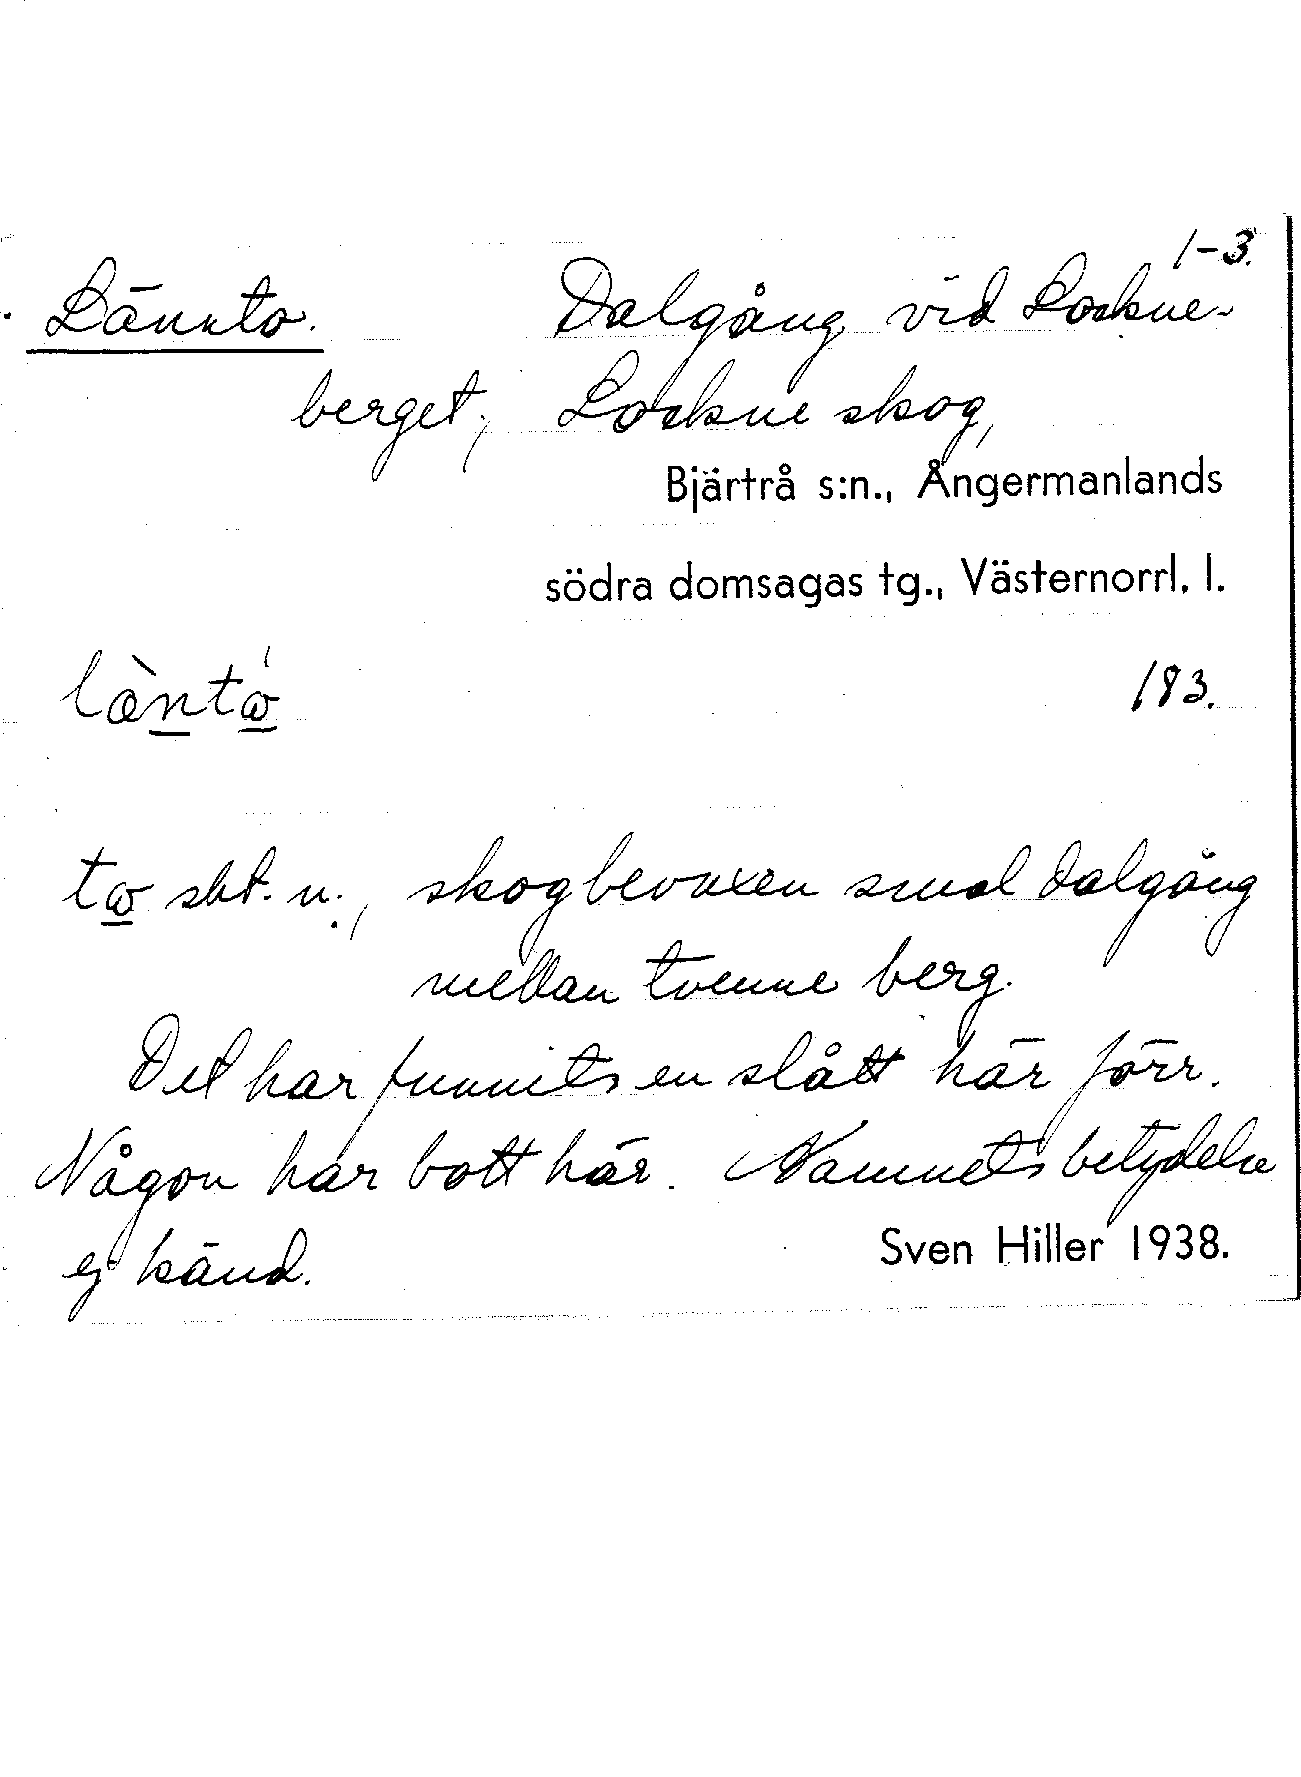 1-3.
Lännto. Dalgång vid Lockne-
berget, Lockne skog,
Bjärtrå s:n., Ångermanlands
södra domsagas tg., Västernorrl. l.
183.
sbt. n., skogbevuxen smal dalgång
mellan tvenne berg.
Det har funnits en slått här förr.
Någon har bott här. Namnets betydelse
ej känd.
Sven Hiller 1938.